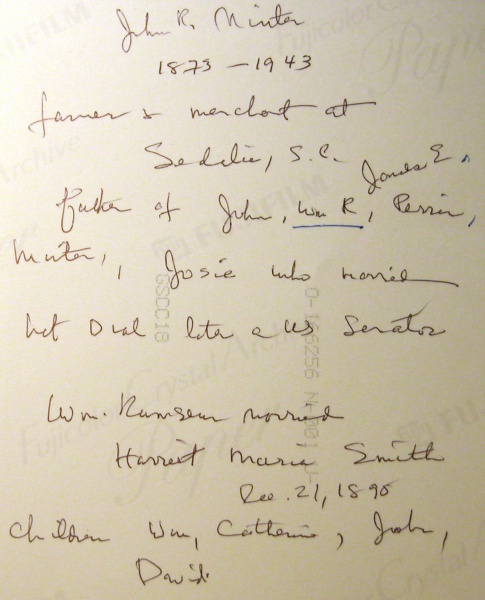 John R. Minter
1873 – 1943
farmer & merchant at
Sedalia, S.C.
James E.,
Father of John, Wm R, Perrin,
Minter, , Josie who married
Nat Dial later a US Senator
Wm. Ramseur married
Harriet Maria Smith
Dec. 21, 1890
Children Wm, Catherine, John,
David
FUJIFILM
Fujicolor Crystal Archive
Paper
GSDC18